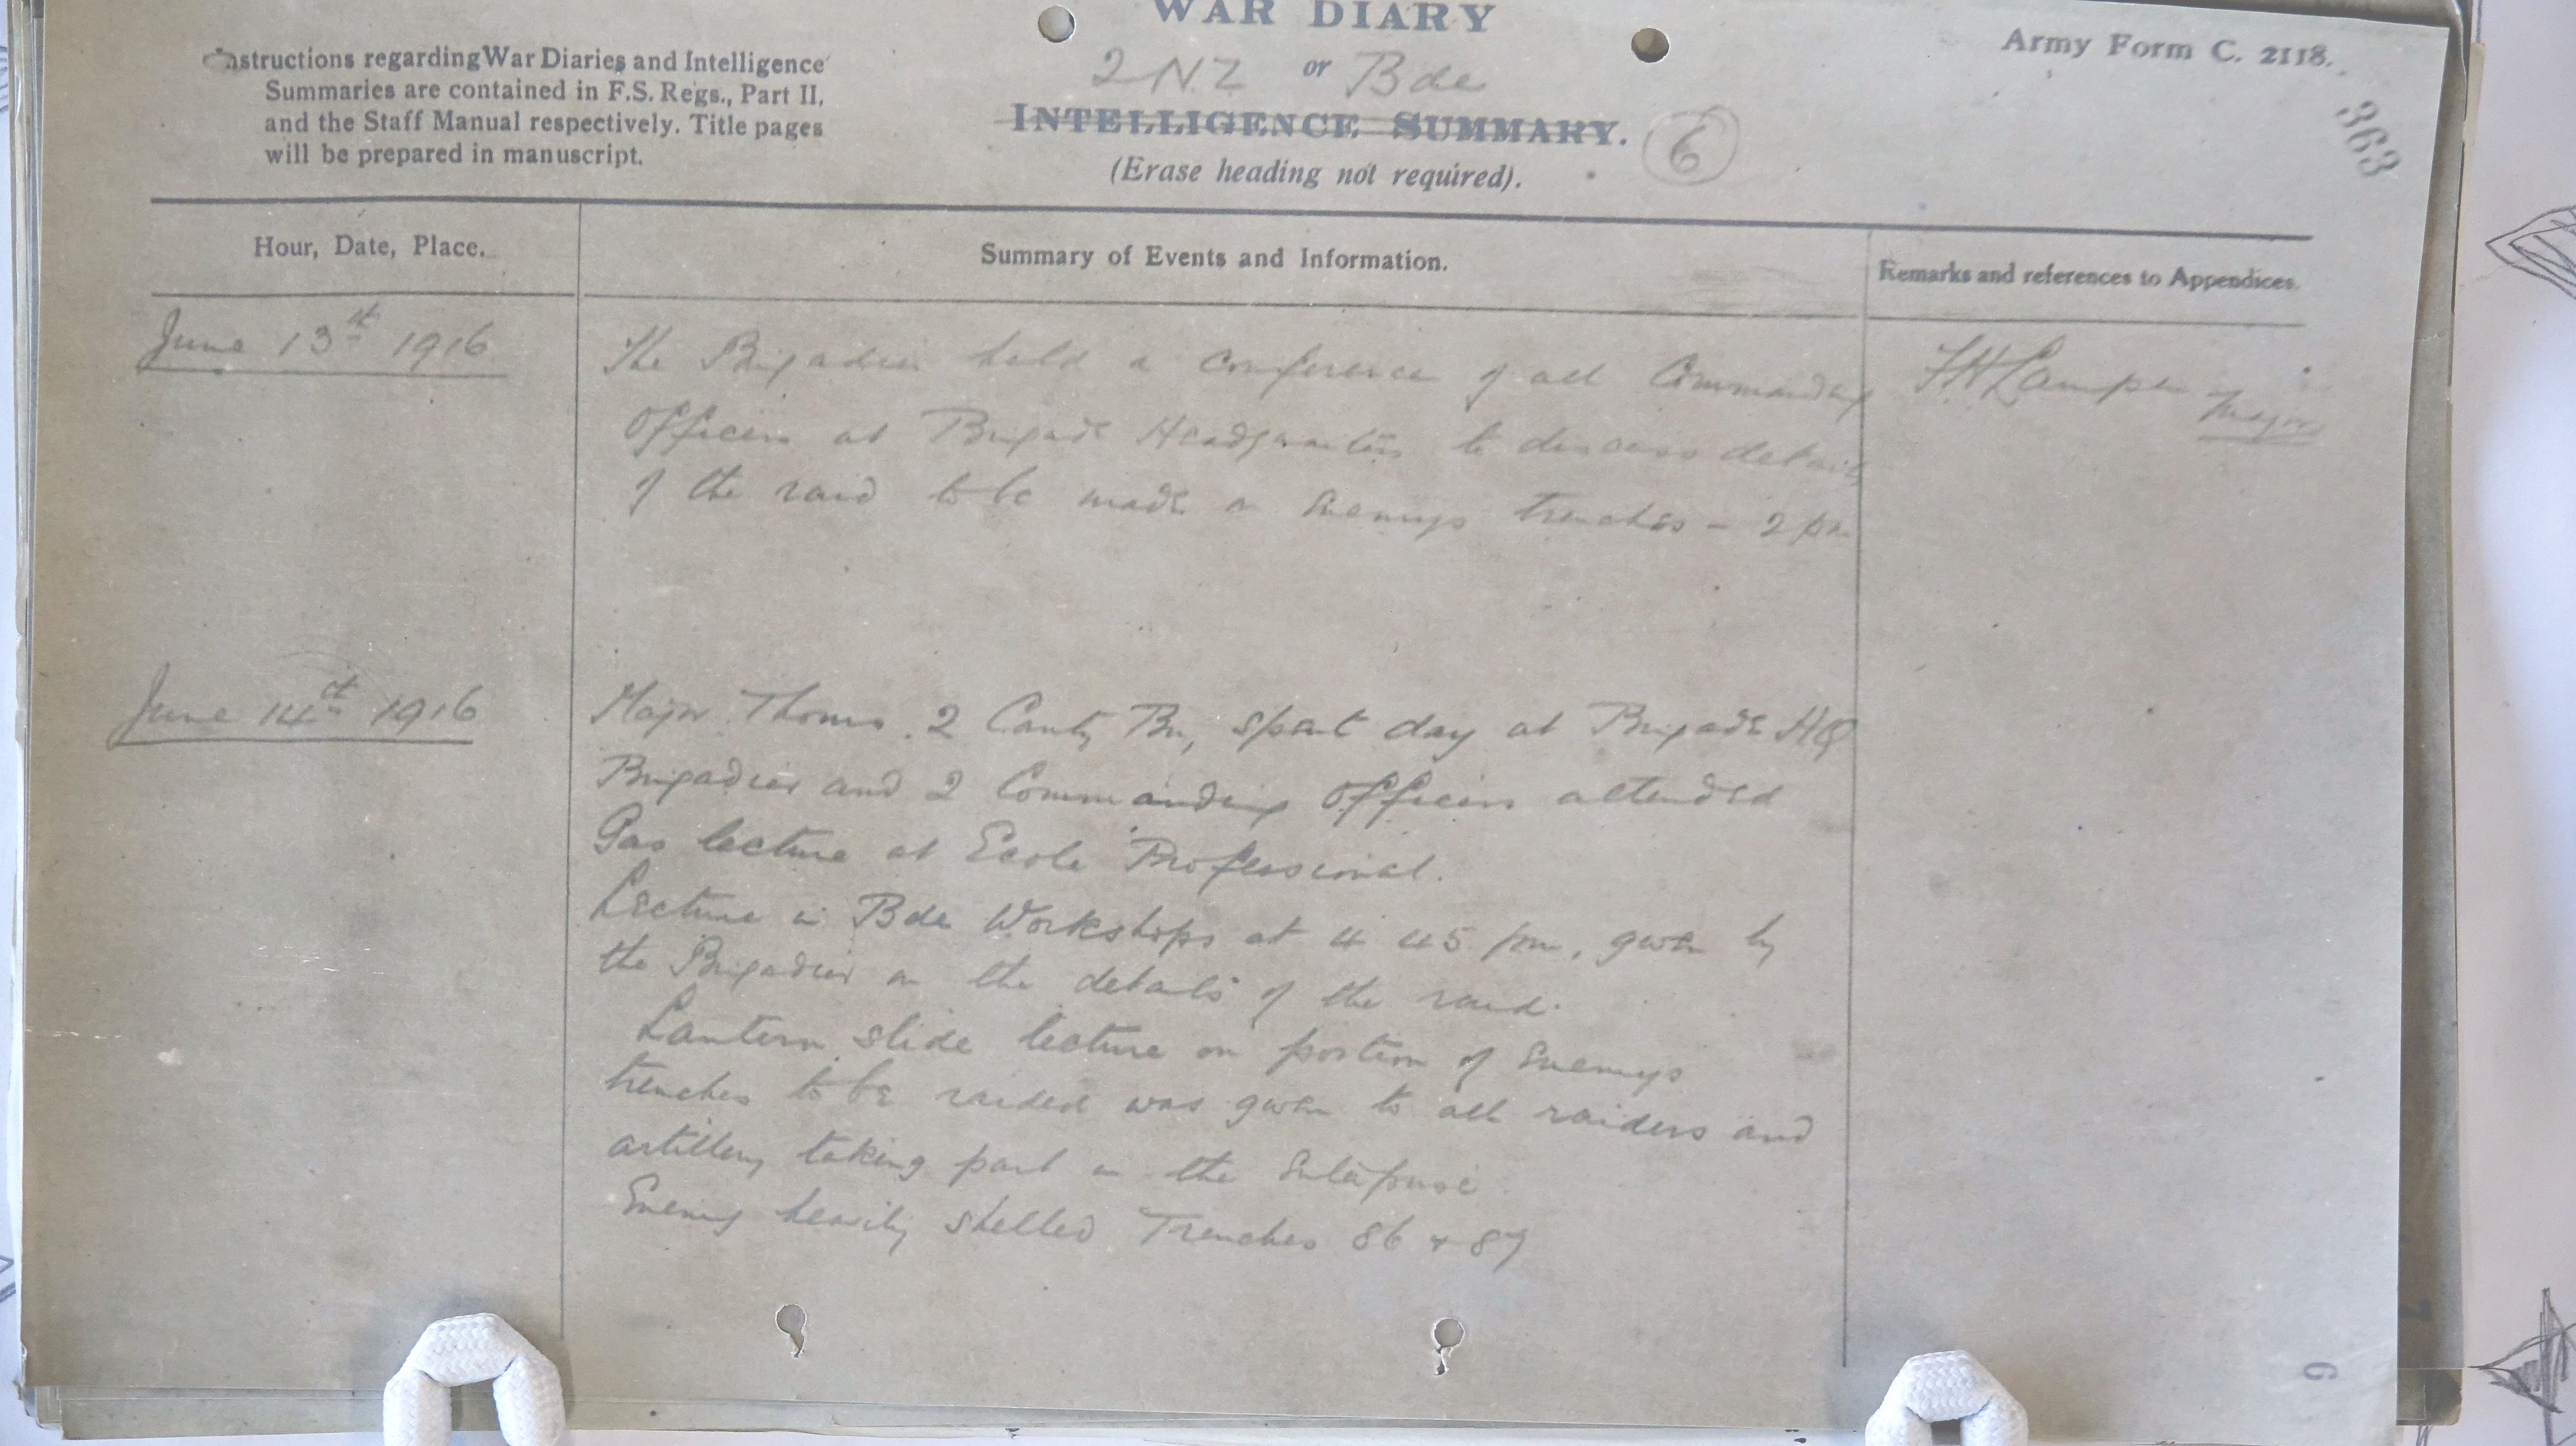 WAR DIARY
Instructions regarding War Diaries and Intelligence
Summaries are contained in F.S. Regs., Part II,
and the Staff Manual respectively. Title pages
will be prepared in manuscript.
2 N.Z or Bde
INTELLIGENCE SUMMARY.
(Erase heading not required).
6
Army Form C. 2118.
363
Hour, Date, Place.
Summary of Events and Information.
Remarks and references to Appendices.
June 13th 1916
The Brigadier held a conference of all Commanding
Officers at Brigade Headquarters to discuss details
of the raid to be made on Enemys trenches - 2 pm
F.H. Lampen Major
June 14th 1916
Major Thoms. 2 Canty Bn, spent day at Brigade HQ
Brigadier and 2 Commanding Officers attended
Gas lecture at Ecole Professional.
Lecture in Bde Workshops at 4 45 pm, given by
the Brigadier on the details of the raid.
Lantern slide lecture on portion of Enemys
trenches to be raided was given to all raiders and
artillery taking part in the Enterprise
Enemy heavily shelled Trenches 86 + 87
6